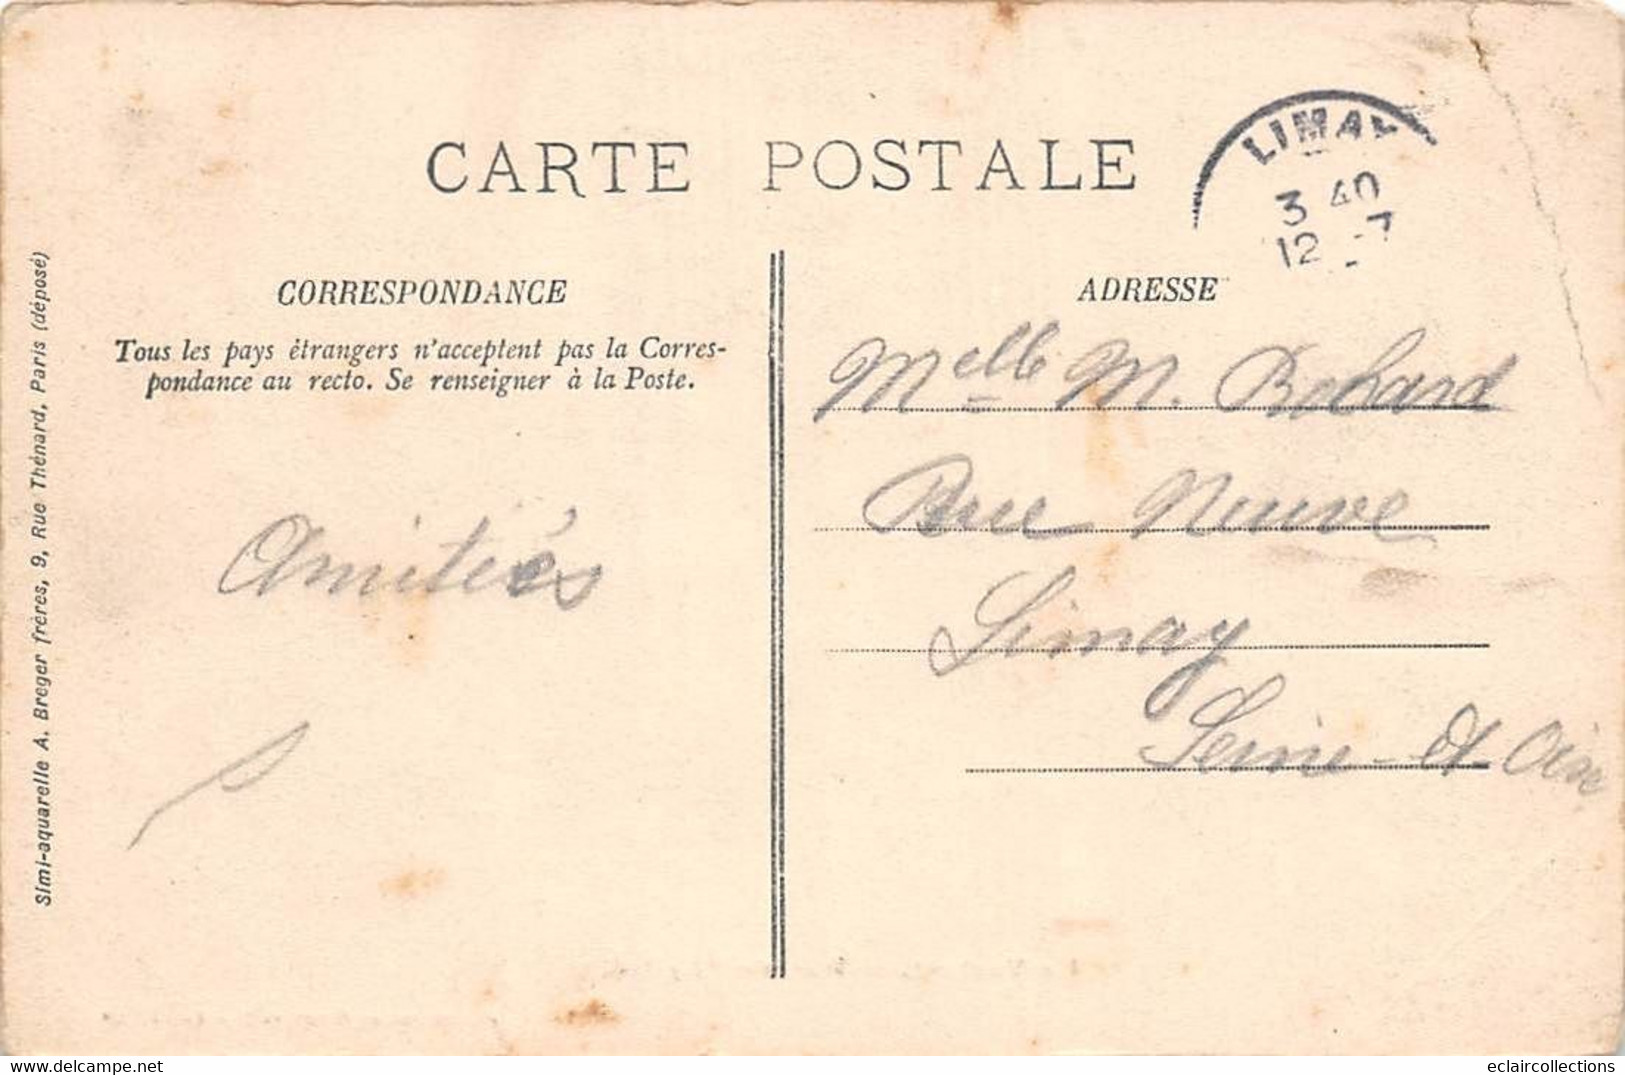 CARTE POSTALE
LIMAY
3 40
12 -7
CORRESPONDANCE
Tous les pays étrangers n'acceptent pas la Corres-
pondance au recto. Se renseigner à la Poste.
Amitiés
ADRESSE
Melle M. Bohard
Rue Neuve
Limay
Seine-et Oise
Simi-aquarelle A. Breger frères, 9, Rue Thénard, Paris (déposé)
eclaircollections